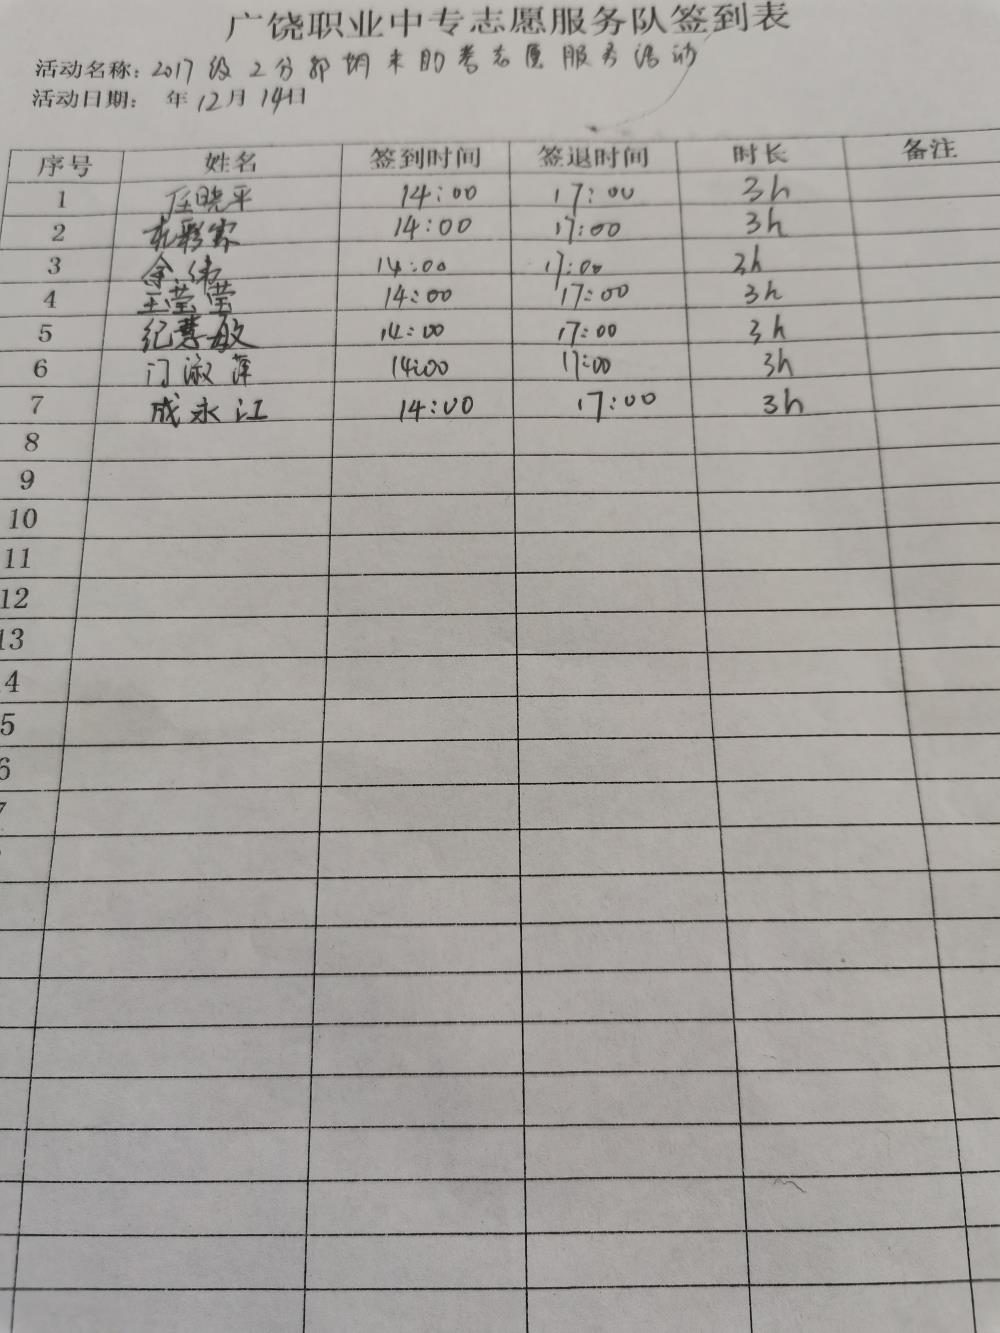 广饶职业中专志愿服务队签到表
活动名称：2017级2分部期末助考志愿服务活动
活动日期： 年12月14日
序号 姓名 签到时间 签退时间 时长 备注
1 任晓平 14:00 17:00 3h
2 14:00 17:00 3h
3 余伟 14:00 17:00 3h
4 王莹莹 14:00 17:00 3h
5 纪尊敏 14:00 17:00 3h
6 门淑萍 14:00 17:00 3h
7 成永江 14:00 17:00 3h
8
9
10
11
12
13
4
5
6
7